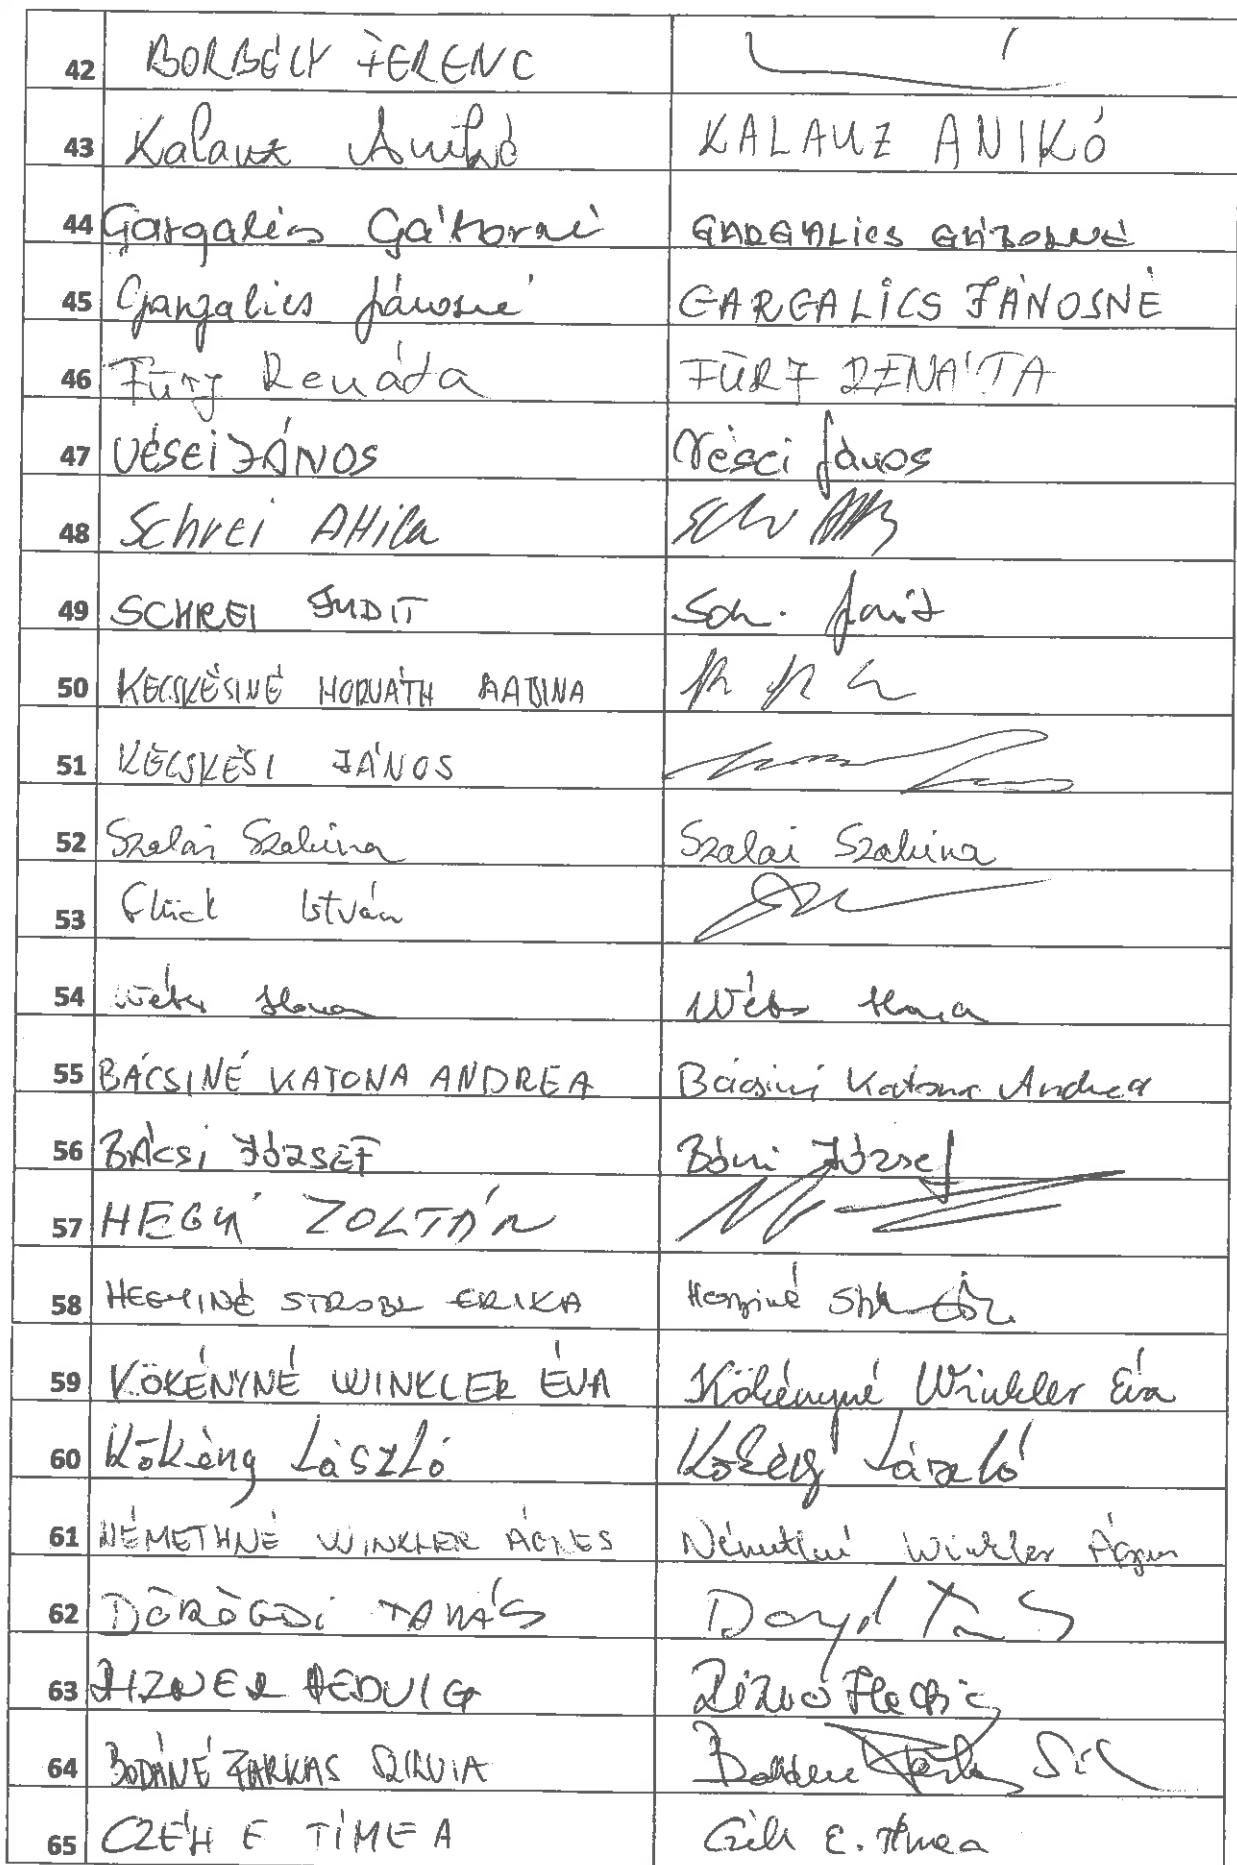 42 BORBÉLY FERENC
43 Kalauz Anikó KALAUZ ANIKÓ
44 Gargalics Gáborné GARGALICS GÁBORNÉ
45 Gargalics Jánosné GARGALICS JÁNOSNÉ
46 Fürj Renáta FÜRJ RENÁTA
47 VÉSEI JÁNOS Vései János
48 Schrei Attila
49 SCHREI JUDIT Sch. Judit
50 KECSKÉSINÉ HORVÁTH
51 KECSKÉSI JÁNOS
52 Szalai Szabina Szalai Szabina
53 Flück István
54 Ilona Ilona
55 BÁCSINÉ KATONA ANDREA Bácsiné Katona Andrea
56 BÁCSI JÓZSEF Bácsi József
57 HEGYI ZOLTÁN
58 HEGYINÉ STROBL ERIKA Hegyiné
59 KÖKÉNYNÉ WINKLER ÉVA Kökényné Winkler Éva
60 Kökény László Kökény László
61 NÉMETHNÉ WINKLER ÁGNES Némethné Winkler Ágnes
62 DÖRÖGDI TAMÁS
63 RIZNER HEDVIG
64 BODÁNÉ FARKAS SZILVIA
65 CZÉH E TÍMEA Czéh E. Tímea